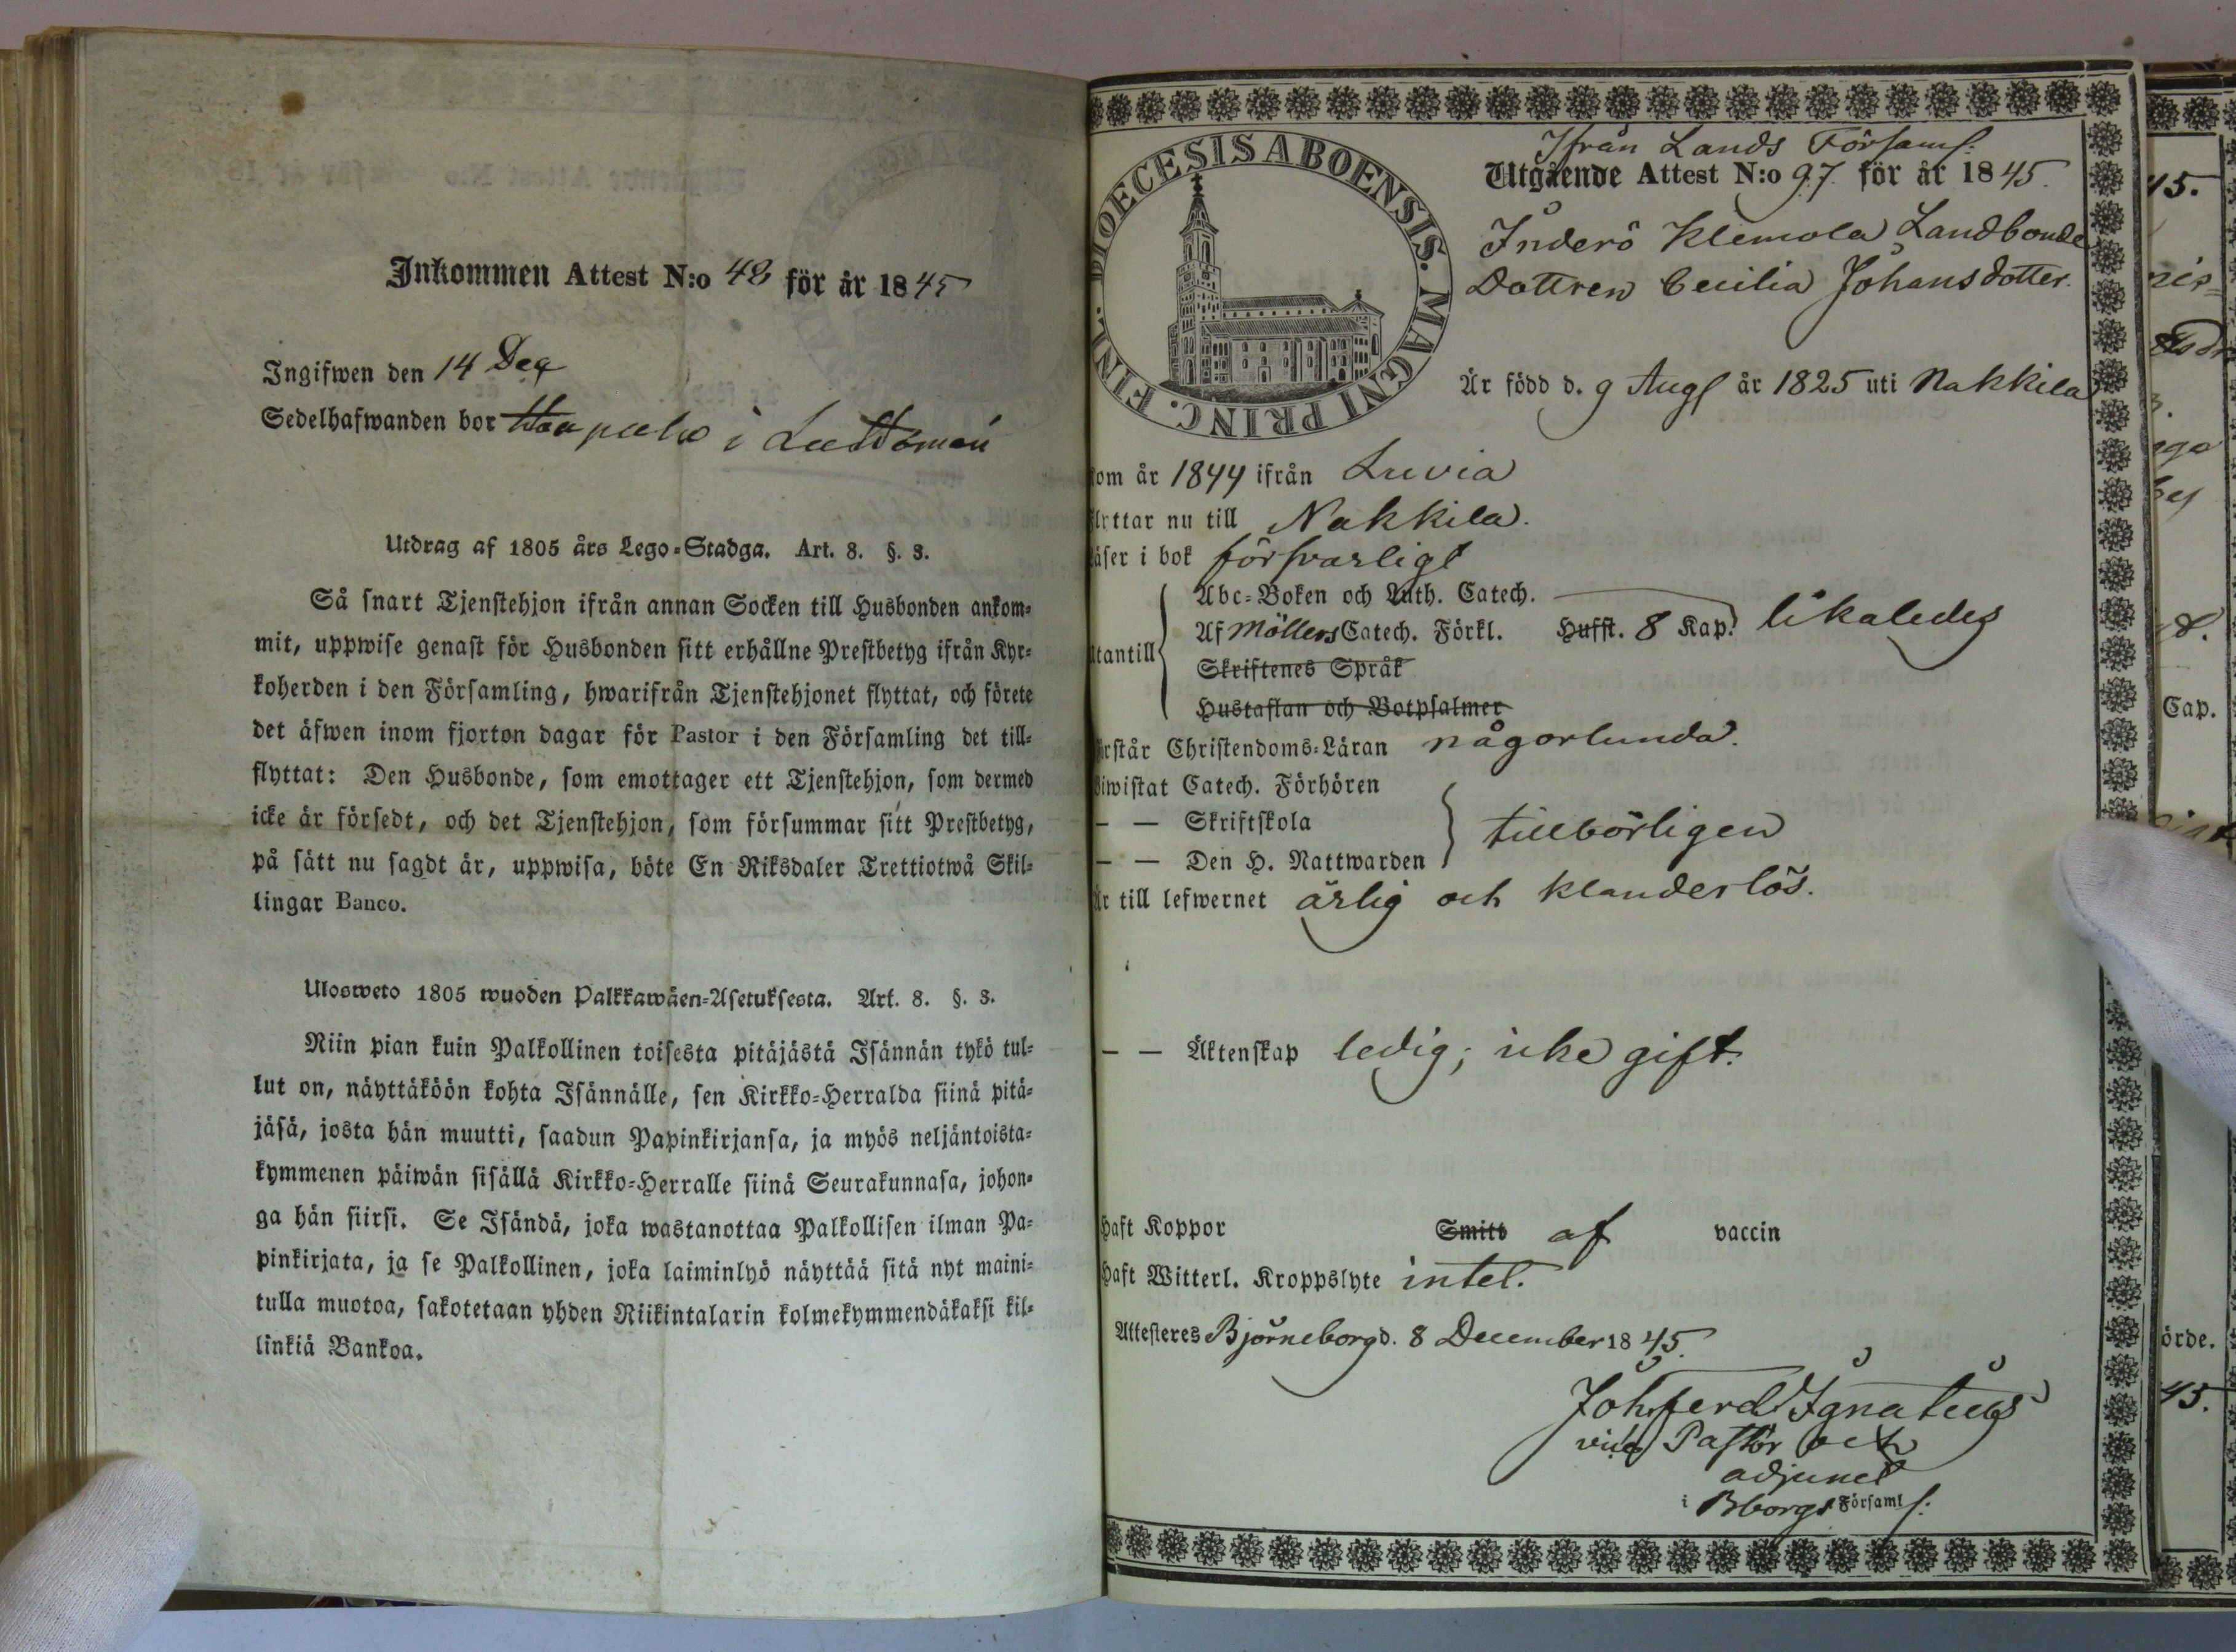 Inkommen Attest N:o 48 för år 1845
Ingifwen den 14 Dec
Sedelhafwanden bor i
Utdrag af 1805 års Lego-Stadga. Art. 8. §. 3.
Så snart Tjenstehjon ifrån annan Socken till Husbonden ankom-
mit, uppwise genast för Husbonden sitt erhållne Prestbetyg ifrån Kyr-
koherden i den Församling, hwarifrån Tjenstehjonet flyttat, och förete
det äfwen inom fjorton dagar för Pastor i den Församling det till-
flyttat: Den Husbonde, som emottager ett Tjenstehjon, som dermed
icke är försedt, och det Tjenstehjon, som försummar sitt Prestbetyg,
på sätt nu sagdt är, uppwisa, böte En Riksdaler Trettiotwå Skil-
lingar Banco.
Ulosweto 1805 wuoden Palkkawäen-Asetuksesta. Art. 8. §. 3.
Niin pian kuin Palkollinen toisesta pitäjästä Isännän tykö tul-
lut on, näyttäköön kohta Isännälle, sen Kirkko-Herralda siinä pitä-
jäsä, josta hän muutti, saadun Papinkirjansa, ja myös neljäntoista-
kymmenen päiwän sisällä Kirkko-Herralle siinä Seurakunnasa, johon-
ga hän siirsi. Se Isändä, joka wastanottaa Palkollisen ilman Pa-
pinkirjata, ja se Palkollinen, joka laiminlyö näyttää sitä nyt maini-
tulla muotoa, sakotetaan yhden Riikintalarin kolmekymmendäkaksi kil-
linkiä Bankoa.
DIOECESIS ABOENSIS. MAGNI PRINC. FINL.
Ifrån Lands Församl:
Utgående Attest N:o 97 för år 1845.
Inderö Klemola Landbonde
Dottren Cecilia Johansdotter.
Är född d. 9 Aug år 1825 uti Nakkila
kom år 1844 ifrån Luvia
flyttar nu till Nakkila.
läser i bok försvarligt
Abc-Boken och Luth. Catech.
utantill Af Möllers Catech. Förkl. Hufst. 8 Kap. likaledes
Skriftenes Språk
Hustaflan och Botpsalmer
förstår Christendoms-Läran någorlunda.
Biwistat Catech. Förhören
— — Skriftskola tillbörligen
— — Den H. Nattwarden
Är till lefwernet ärlig och klanderlös.
— — Äktenskap ledig; icke gift.
Haft Koppor Smitt af vaccin
Haft Witterl. Kroppslyte intet.
Attesteres Björneborg d. 8 December 1845.
Joh. Ferd. Ignatius
vice Pastor och
adjunct
i Bborgs Församl: